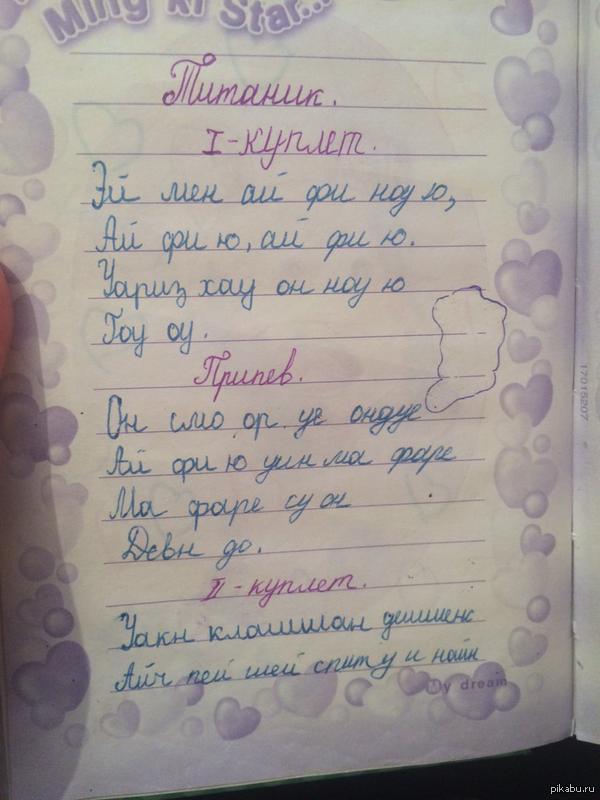 Ming ki Star...
Титаник.
I-куплет.
Эй мен ай фи ноу ю,
Ай фи ю, ай фи ю.
Уариз хау он ноу ю
Гоу оу.
Припев.
Он смо ор уе ондуе
Ай фи ю уин ма фаре
Ма фаре су он
Девн до.
II-куплет.
Уакн клашилан дешиенс
Айч пей шей спиту и найн
My dream
17015207
pikabu.ru